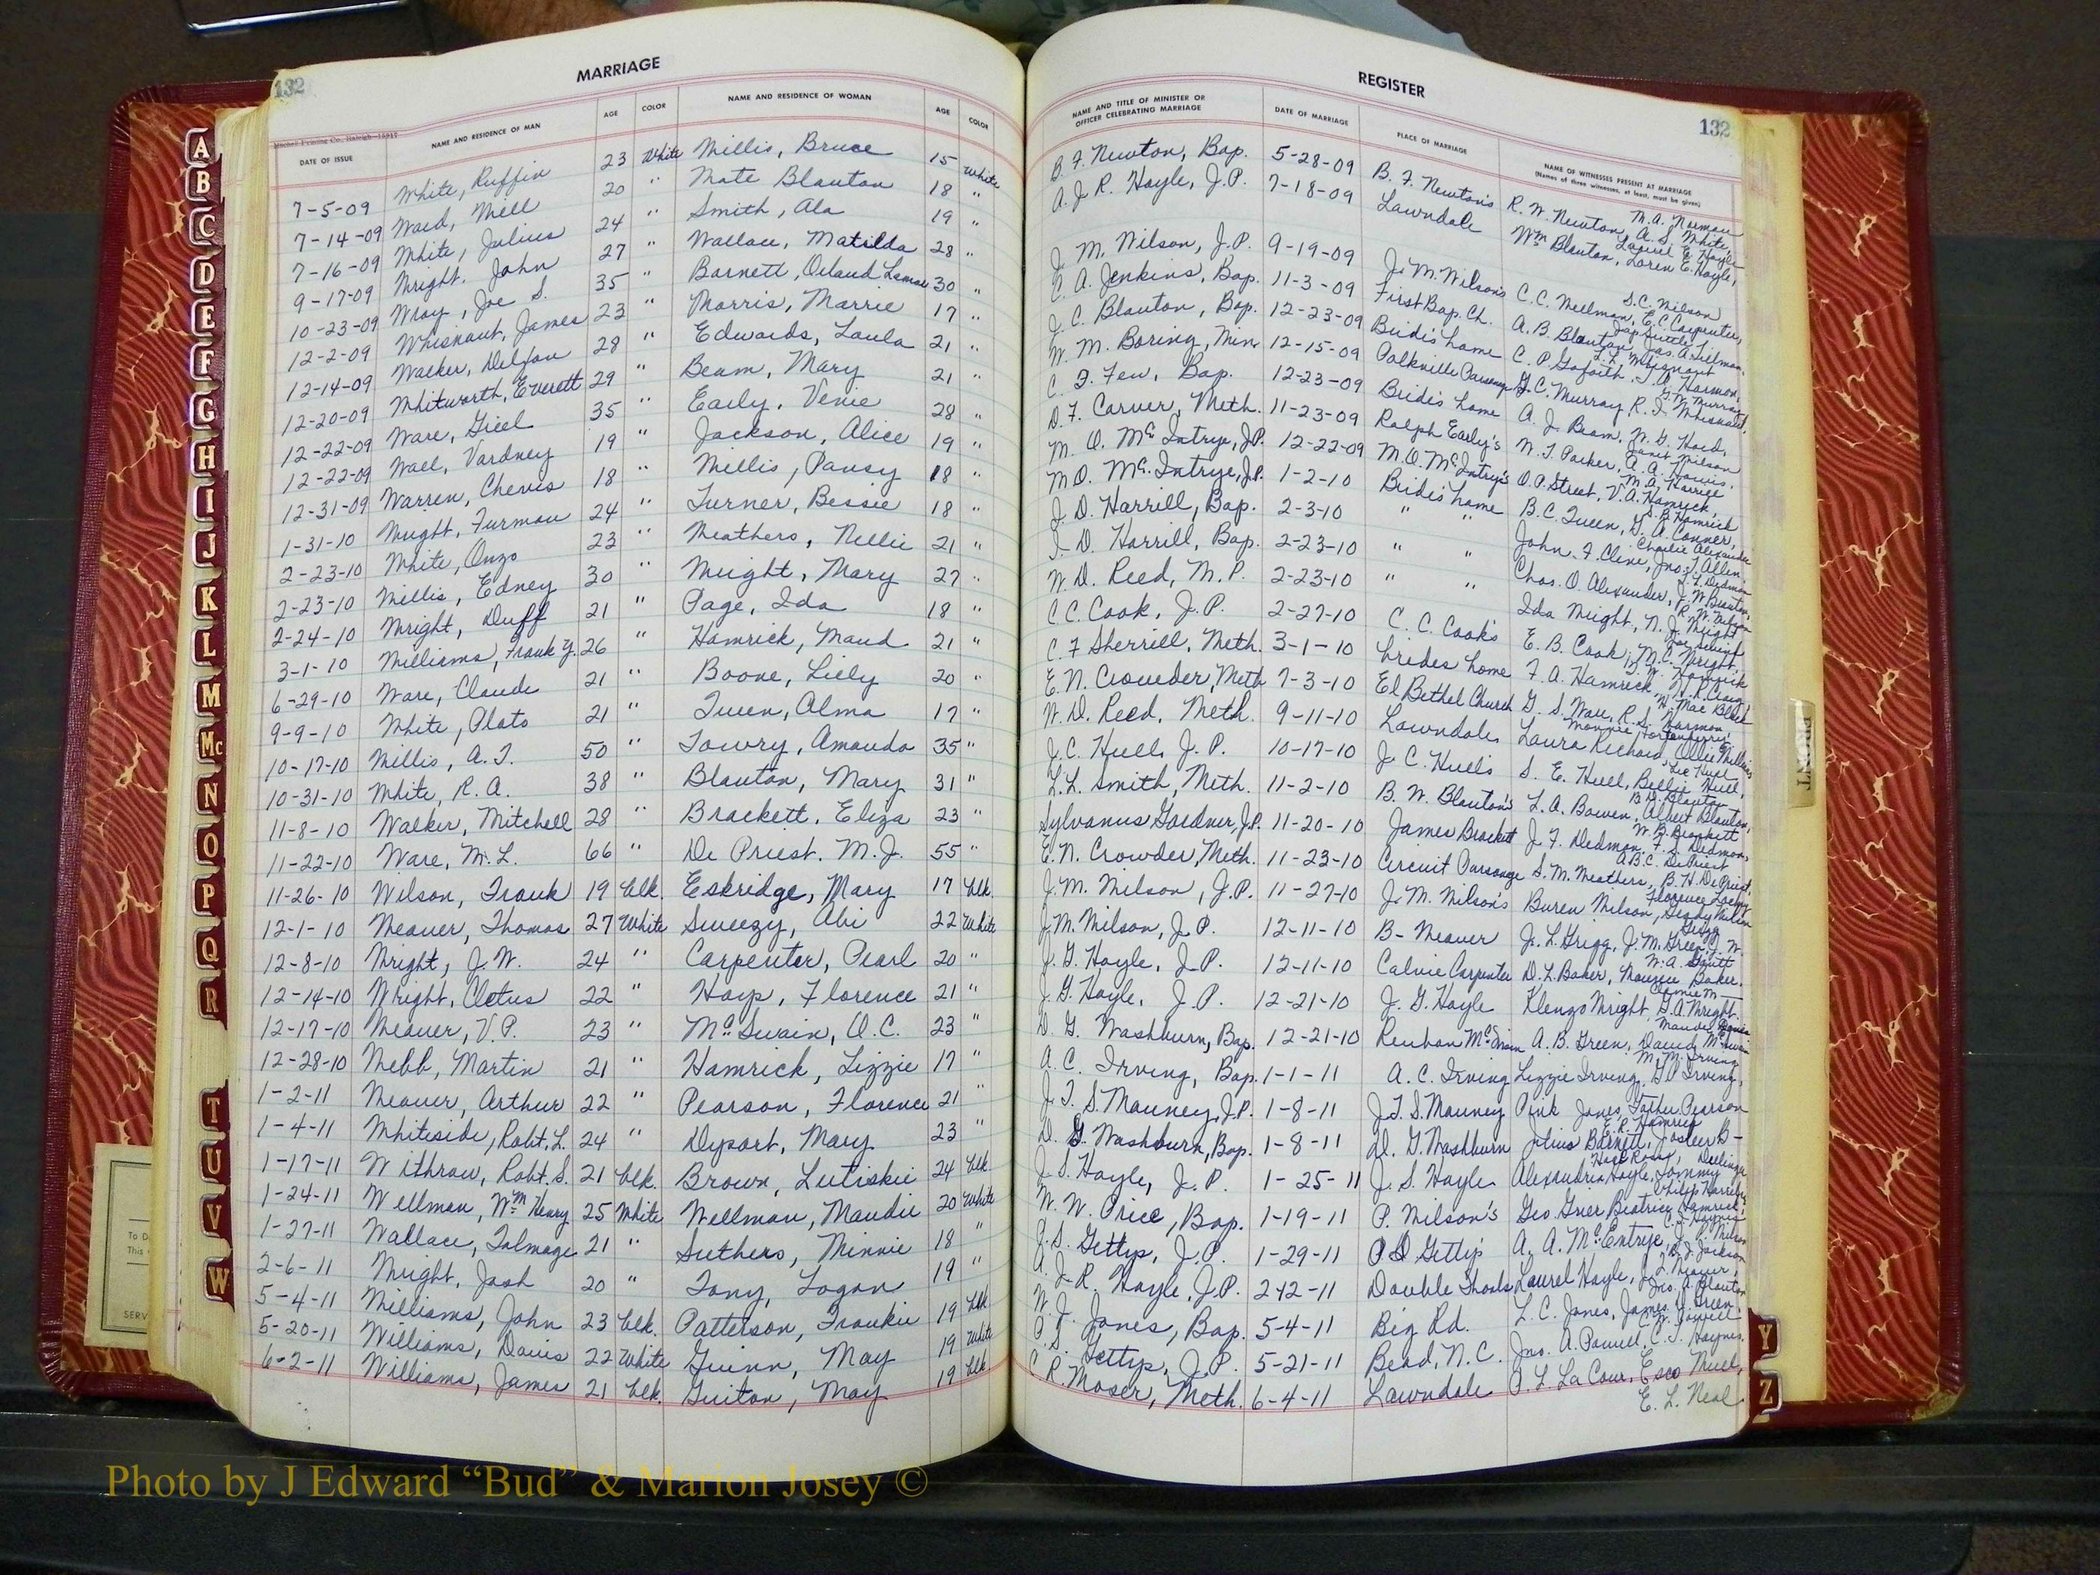 132
MARRIAGE
DATE OF ISSUE NAME AND RESIDENCE OF MAN AGE COLOR NAME AND RESIDENCE OF WOMAN AGE COLOR
7-5-09 White, Ruffin 23 White Willis, Bruce 15 White
7-14-09 Ward, Will 20 " Mate Blanton 18 "
7-16-09 White, Julius 24 " Smith, Ala 19 "
9-17-09 Wright, John 27 " Wallace, Matilda 28 "
10-23-09 Wray, Joe S. 35 " Barnett, Orlaud 30 "
12-2-09 Whisnant, James 23 " Morris, Marrie 17 "
12-14-09 Walker, 28 " Edwards, Laula 21 "
12-20-09 Whitworth, Everett 29 " Beam, Mary 21 "
12-22-09 Ware, 35 " Early, Venie 28 "
12-22-09 Wael, Vardney 19 " Jackson, Alice 19 "
12-31-09 Warren, Chevis 18 " Willis, Pansy 18 "
1-31-10 Wright, Furman 24 " Turner, Bessie 18 "
2-23-10 White, Onzo 23 " Weathers, Nellie 21 "
2-23-10 Willis, Edney 30 " Wright, Mary 27 "
2-24-10 Wright, Duff 21 " Page, Ida 18 "
3-1-10 Williams, Frank Y. 26 " Hamrick, Maud 21 "
6-29-10 Ware, Claude 21 " Boone, Lily 20 "
9-9-10 White, Plato 21 " Queen, Alma 17 "
10-17-10 Willis, A. T. 50 " Towry, Amanda 35 "
10-31-10 White, R. A. 38 " Blanton, Mary 31 "
11-8-10 Walker, Mitchell 28 " Brackett, Eliza 23 "
11-22-10 Ware, M. L. 66 " De Priest, M. J. 55 "
11-26-10 Wilson, Frank 19 blk. Eskridge, Mary 17 blk.
12-1-10 Weaver, Thomas 27 White Sweezy, Abi 22 White
12-8-10 Wright, J. W. 24 " Carpenter, Pearl 20 "
12-14-10 Wright, Cletus 22 " Hoyp, Florence 21 "
12-17-10 Weaver, V. P. 23 " Mc Swain, O. C. 23 "
12-28-10 Webb, Martin 21 " Hamrick, Lizzie 17 "
1-2-11 Weaver, Arthur 22 " Pearson, Florence 21 "
1-4-11 Whiteside, Robt. L. 24 " Dysart, Mary 23 "
1-17-11 Withrow, Robt. S. 21 blk. Brown, Lutiskie 24 blk.
1-24-11 Wellman, Wm Henry 25 White Wellman, Maudie 20 White
1-27-11 Wallace, Talmage 21 " Suthers, Minnie 18 "
2-6-11 Wright, Josh 20 " Tony, Logan 19 "
5-4-11 Williams, John 23 blk. Patterson, Frankie 19 blk.
5-20-11 Williams, Davis 22 White Guinn, May 19 White
6-2-11 Williams, James 21 blk. Guiton, May 19 blk.
REGISTER
132
NAME AND TITLE OF MINISTER OR OFFICER CELEBRATING MARRIAGE DATE OF MARRIAGE PLACE OF MARRIAGE NAME OF WITNESSES PRESENT AT MARRIAGE
(Names of three witnesses, at least, must be given)
B. F. Newton, Bap. 5-28-09 B. F. Newton's R. W. Newton, A. S. White, M. A. Norman
A. J R. Hoyle, J. P. 7-18-09 Lawndale Wm Blanton, Loren E. Hoyle, Laurel E. Hoyle
J. M. Wilson, J. P. 9-19-09 J. M. Wilson's C. C. Wellman, E. C. Carpenter, S. C. Wilson
C. A. Jenkins, Bap. 11-3-09 First Bap. Ch. A. B. Blanton, Jas. A. Gillman, Jap Suttle
J. C. Blanton, Bap. 12-23-09 Bride's home C. P. Goforth
W. M. Boring, Min 12-15-09 Polkville Parsonage G. C. Murray, R. I. Whisnant, G. W. Murray
C. F. Few, Bap. 12-23-09 Bride's home A. J. Beam
D. F. Carver, Meth. 11-23-09 Ralph Early's W. T. Packer
M. O. Mc Intrye, J.P. 12-22-09 M. O. McIntrye's O. P. Street, V. A. Hamrick,
M. O. Mc. Intrye, J.P. 1-2-10 Bride's home B. C. Queen, G. A. Conner, S. B. Hamrick
J. D. Harrill, Bap. 2-3-10 " " John. F. Cline, Jno. T. Allen, Charlie Alexander
I. D. Harrill, Bap. 2-23-10 " " Chas. O. Alexander
W. D. Reed, M. P. 2-23-10 " " Ida Wright, N. J. Wright
C. C. Cook, J. P. 2-27-10 C. C. Cook's E. B. Cook, M. C. Wright,
C. F Sherrill, Meth. 3-1-10 brides home F. A. Hamrick
E. N. Crowder, Meth 7-3-10 El Bethel Church G. S. Ware, R. S. Harmon
W. D. Reed, Meth. 9-11-10 Lawndale Laura Richard, Ollie Williams
J. C. Hull, J. P. 10-17-10 J. C. Hull's S. E. Hull, Bellie Hull,
L. L. Smith, Meth. 11-2-10 B. W. Blanton's L. A. Bowen, Albert Blanton, B. D. Blanton
Sylvanus Gardner, J.P. 11-20-10 James Brackett J. F. Dedmon, F. S. Dedmon, W. B. Brackett
E. N. Crowder, Meth. 11-23-10 Circuit Parsonage S. M. Weathers, B. H. De Priest, A. B. C. De Priest
J. M. Wilson, J. P. 11-27-10 J. M. Wilson's Buren Wilson, Grady Wilson
J. M. Wilson, J. P. 12-11-10 B- Weaver J. L. Grigg, J. M. Green, J. W. Grigg
J. G. Hoyle, J. P. 12-11-10 Calvie Carpenter D. L. Baker, Nanzie Baker,
J. G. Hoyle, J. P. 12-21-10 J. G. Hoyle Klenzo Wright, G. A. Wright
D. G. Washburn, Bap. 12-21-10 Reuban McSwain A. B. Green, David McSwain
A. C. Irving, Bap. 1-1-11 A. C. Irving Lizzie Irving, G. Irving, M. M. Irving
J. T. S. Mauney, J.P. 1-8-11 J. T. S. Mauney Pink Jones, Father Pearson
D. G. Washburn, Bap. 1-8-11 D. G. Washburn Julius Barnett, E. R. Hamrick
J. S. Hoyle, J. P. 1-25-11 J. S. Hoyle Alexandria Hoyle, Tommy Dellinger
W. W. Price, Bap. 1-19-11 P. Wilson's Geo. Grier Beatrice Hamrick
P. S. Gettys, J. P. 1-29-11 P S Getty's A. A. Mc.Entrye, J. P. Wilson
A. J. R. Hoyle, J.P. 2-12-11 Double Shoals Laurel Hoyle, J. L. Weaver,
W. J. Jones, Bap. 5-4-11 Big Rd. L. C. Jones, James Green, Jno. A. Blanton
P. S. Gettys, J. P. 5-21-11 Bead, N. C. Jno. A. Powell, C. J. Haynes, C. W. Powell
C. R. Moser, Meth. 6-4-11 Lawndale P. L. La Cour, Esco Nuel,
E. L. Neal
A
B
C
D
E
F
G
H
I
J
K
L
M
Mc
N
O
P
Q
R
T
U
V
W
Y
Z
To D
This
SERV
Photo by J Edward “Bud” & Marion Josey ©